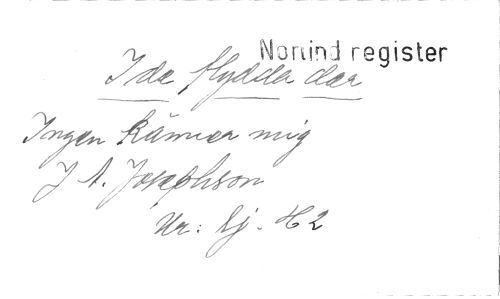 Norlind register
I de flydda dar
Ingen känner mig
J A. Josephson
Ur: Sj. H2